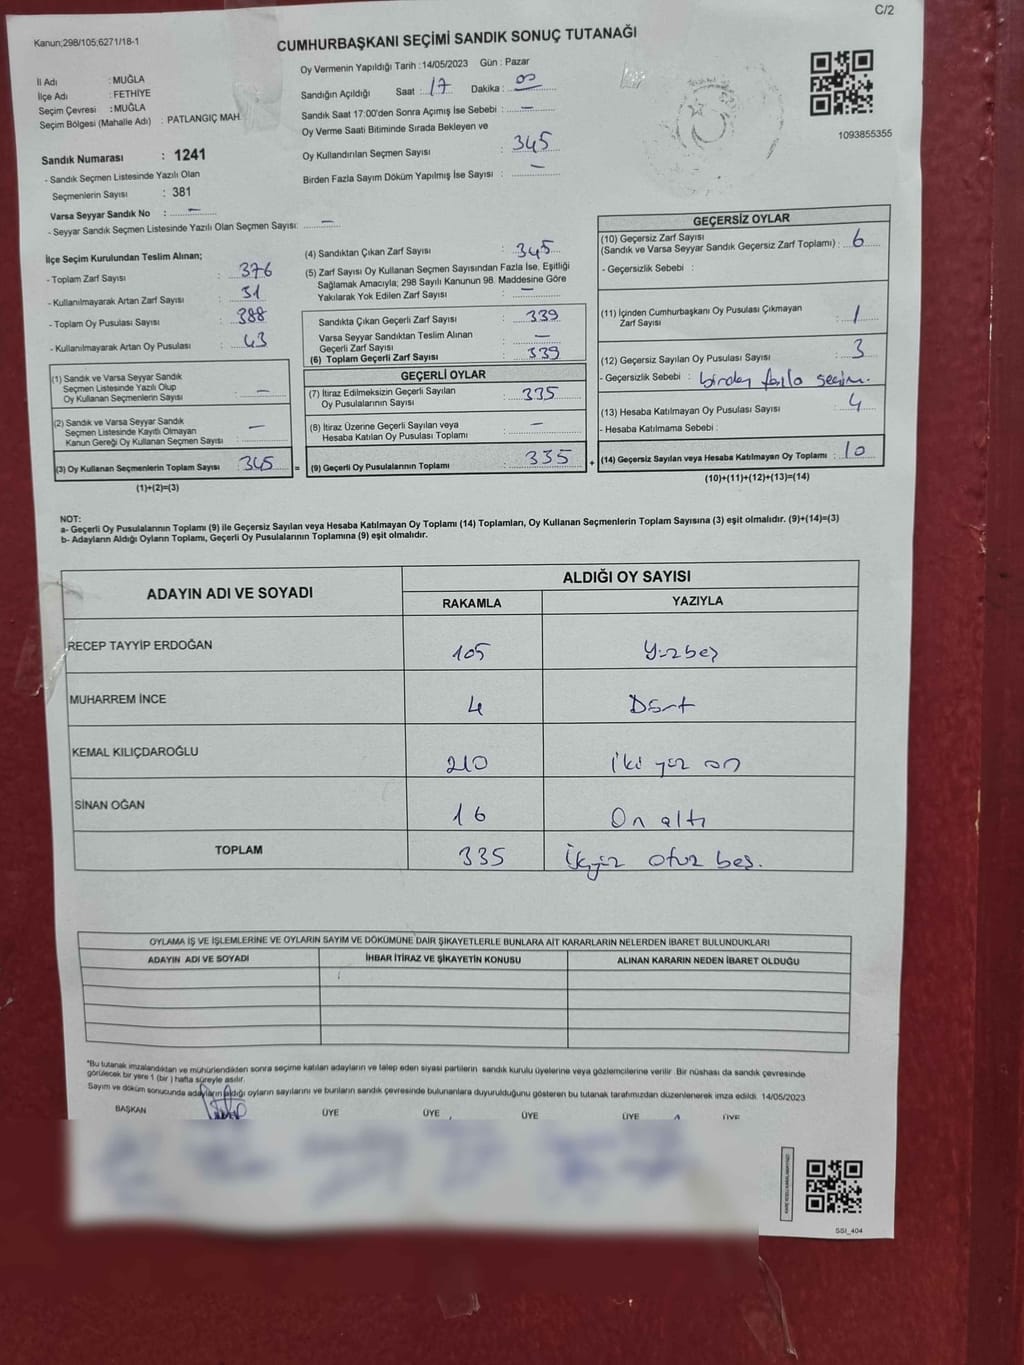 C/2
Kanun;298/105;6271/18-1
CUMHURBAŞKANI SEÇİMİ SANDIK SONUÇ TUTANAĞI
İl Adı : MUĞLA
İlçe Adı : FETHİYE
Seçim Çevresi : MUĞLA
Seçim Bölgesi (Mahalle Adı) : PATLANGIÇ MAH
Sandık Numarası : 1241
- Sandık Seçmen Listesinde Yazılı Olan
Seçmenlerin Sayısı : 381
Varsa Seyyar Sandık No : –
- Seyyar Sandık Seçmen Listesinde Yazılı Olan Seçmen Sayısı: –
Oy Vermenin Yapıldığı Tarih :14/05/2023 Gün : Pazar
Sandığın Açıldığı Saat : 17 Dakika : 00
Sandık Saat 17:00'den Sonra Açımış İse Sebebi : –
Oy Verme Saati Bitiminde Sırada Bekleyen ve
Oy Kullandırılan Seçmen Sayısı : 345
Birden Fazla Sayım Döküm Yapılmış İse Sayısı : –
1093855355
İlçe Seçim Kurulundan Teslim Alınan;
- Toplam Zarf Sayısı : 376
- Kullanılmayarak Artan Zarf Sayısı : 31
- Toplam Oy Pusulası Sayısı : 388
- Kullanılmayarak Artan Oy Pusulası : 43
(1) Sandık ve Varsa Seyyar Sandık
Seçmen Listesinde Yazılı Olup
Oy Kullanan Seçmenlerin Sayısı : –
(2) Sandık ve Varsa Seyyar Sandık
Seçmen Listesinde Kayıtlı Olmayan
Kanun Gereği Oy Kullanan Seçmen Sayısı : –
(3) Oy Kullanan Seçmenlerin Toplam Sayısı : 345 =
(1)+(2)=(3)
(4) Sandıktan Çıkan Zarf Sayısı : 345
(5) Zarf Sayısı Oy Kullanan Seçmen Sayısından Fazla İse, Eşitliği
Sağlamak Amacıyla; 298 Sayılı Kanunun 98. Maddesine Göre
Yakılarak Yok Edilen Zarf Sayısı : –
Sandıkta Çıkan Geçerli Zarf Sayısı : 339
Varsa Seyyar Sandıktan Teslim Alınan
Geçerli Zarf Sayısı : –
(6) Toplam Geçerli Zarf Sayısı : 339
GEÇERLİ OYLAR
(7) İtiraz Edilmeksizin Geçerli Sayılan
Oy Pusulalarının Sayısı : 335
(8) İtiraz Üzerine Geçerli Sayılan veya
Hesaba Katılan Oy Pusulası Toplamı : –
(9) Geçerli Oy Pusulalarının Toplamı : 335 +
GEÇERSİZ OYLAR
(10) Geçersiz Zarf Sayısı
(Sandık ve Varsa Seyyar Sandık Geçersiz Zarf Toplamı) : 6
- Geçersizlik Sebebi :
(11) İçinden Cumhurbaşkanı Oy Pusulası Çıkmayan
Zarf Sayısı : 1
(12) Geçersiz Sayılan Oy Pusulası Sayısı : 3
- Geçersizlik Sebebi : birden fazla seçim.
(13) Hesaba Katılmayan Oy Pusulası Sayısı : 4
- Hesaba Katılmama Sebebi :
(14) Geçersiz Sayılan veya Hesaba Katılmayan Oy Toplamı : 10
(10)+(11)+(12)+(13)=(14)
NOT:
a- Geçerli Oy Pusulalarının Toplamı (9) ile Geçersiz Sayılan veya Hesaba Katılmayan Oy Toplamı (14) Toplamları, Oy Kullanan Seçmenlerin Toplam Sayısına (3) eşit olmalıdır. (9)+(14)=(3)
b- Adayların Aldığı Oyların Toplamı, Geçerli Oy Pusulalarının Toplamına (9) eşit olmalıdır.
ADAYIN ADI VE SOYADI ALDIĞI OY SAYISI
RAKAMLA YAZIYLA
RECEP TAYYİP ERDOĞAN 105 Yüzbeş
MUHARREM İNCE 4 Dört
KEMAL KILIÇDAROĞLU 210 İki yüz on
SİNAN OĞAN 16 On altı
TOPLAM 335 Üçyüz otuz beş.
OYLAMA İŞ VE İŞLEMLERİNE VE OYLARIN SAYIM VE DÖKÜMÜNE DAİR ŞİKAYETLERLE BUNLARA AİT KARARLARIN NELERDEN İBARET BULUNDUKLARI
ADAYIN ADI VE SOYADI İHBAR İTİRAZ VE ŞİKAYETİN KONUSU ALINAN KARARIN NEDEN İBARET OLDUĞU
*Bu tutanak imzalandıktan ve mühürlendikten sonra seçime katılan adayların ve talep eden siyasi partilerin sandık kurulu üyelerine veya gözlemcilerine verilir. Bir nüshası da sandık çevresinde
görülecek bir yere 1 (bir) hafta süreyle asılır.
Sayım ve döküm sonucunda adayların aldığı oyların sayılarını ve bunların sandık çevresinde bulunanlara duyurulduğunu gösteren bu tutanak tarafımızdan düzenlenerek imza edildi. 14/05/2023
BAŞKAN ÜYE ÜYE ÜYE ÜYE ÜYE
SSI_404